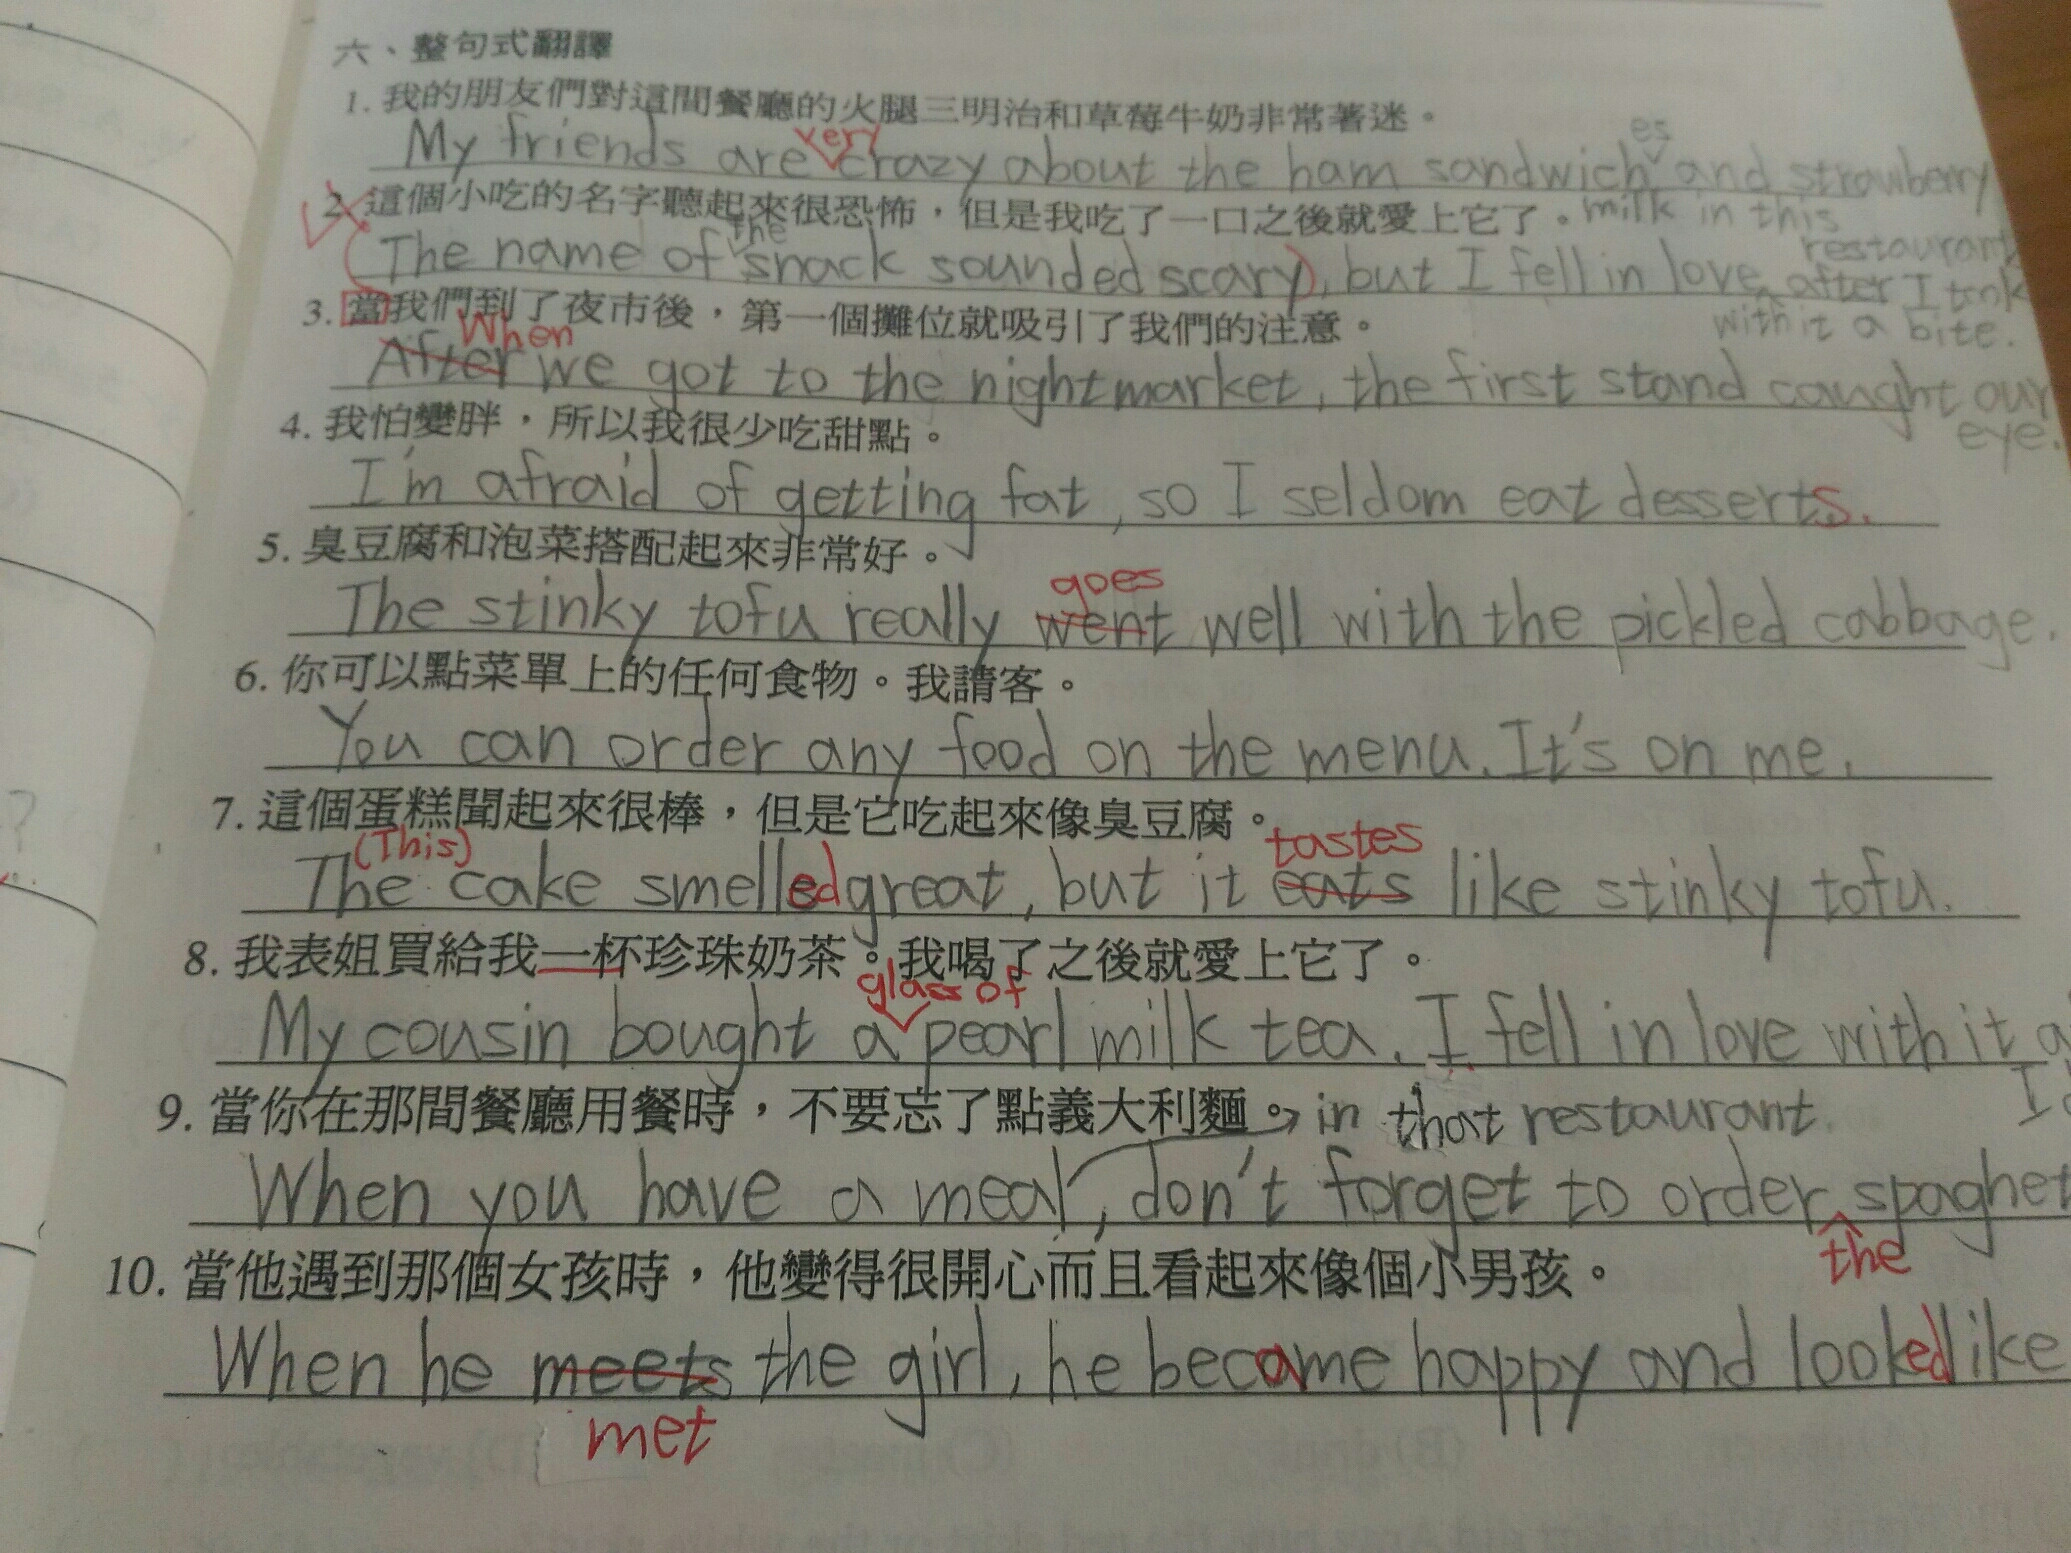 六、整句式翻譯
1. 我的朋友們對這間餐廳的火腿三明治和草莓牛奶非常著迷。
very
es
My friends are crazy about the ham sandwich and strawberry
milk in this
restaurant
2. 這個小吃的名字聽起來很恐怖，但是我吃了一口之後就愛上它了。
the
The name of snack sounded scary, but I fell in love after I took
with it a bite.
3. 當我們到了夜市後，第一個攤位就吸引了我們的注意。
When
After we got to the night market, the first stand caught our
eye.
4. 我怕變胖，所以我很少吃甜點。
I'm afraid of getting fat, so I seldom eat desserts.
5. 臭豆腐和泡菜搭配起來非常好。
goes
The stinky tofu really went well with the pickled cabbage.
6. 你可以點菜單上的任何食物。我請客。
You can order any food on the menu. It's on me.
7. 這個蛋糕聞起來很棒，但是它吃起來像臭豆腐。
(This)
tastes
The cake smelled great, but it eats like stinky tofu.
8. 我表姐買給我一杯珍珠奶茶。我喝了之後就愛上它了。
glass of
My cousin bought a pearl milk tea. I fell in love with it a
I
9. 當你在那間餐廳用餐時，不要忘了點義大利麵。
in that restaurant.
When you have a meal, don't forget to order spaghet
the
10. 當他遇到那個女孩時，他變得很開心而且看起來像個小男孩。
When he meets the girl, he became happy and looked like
met